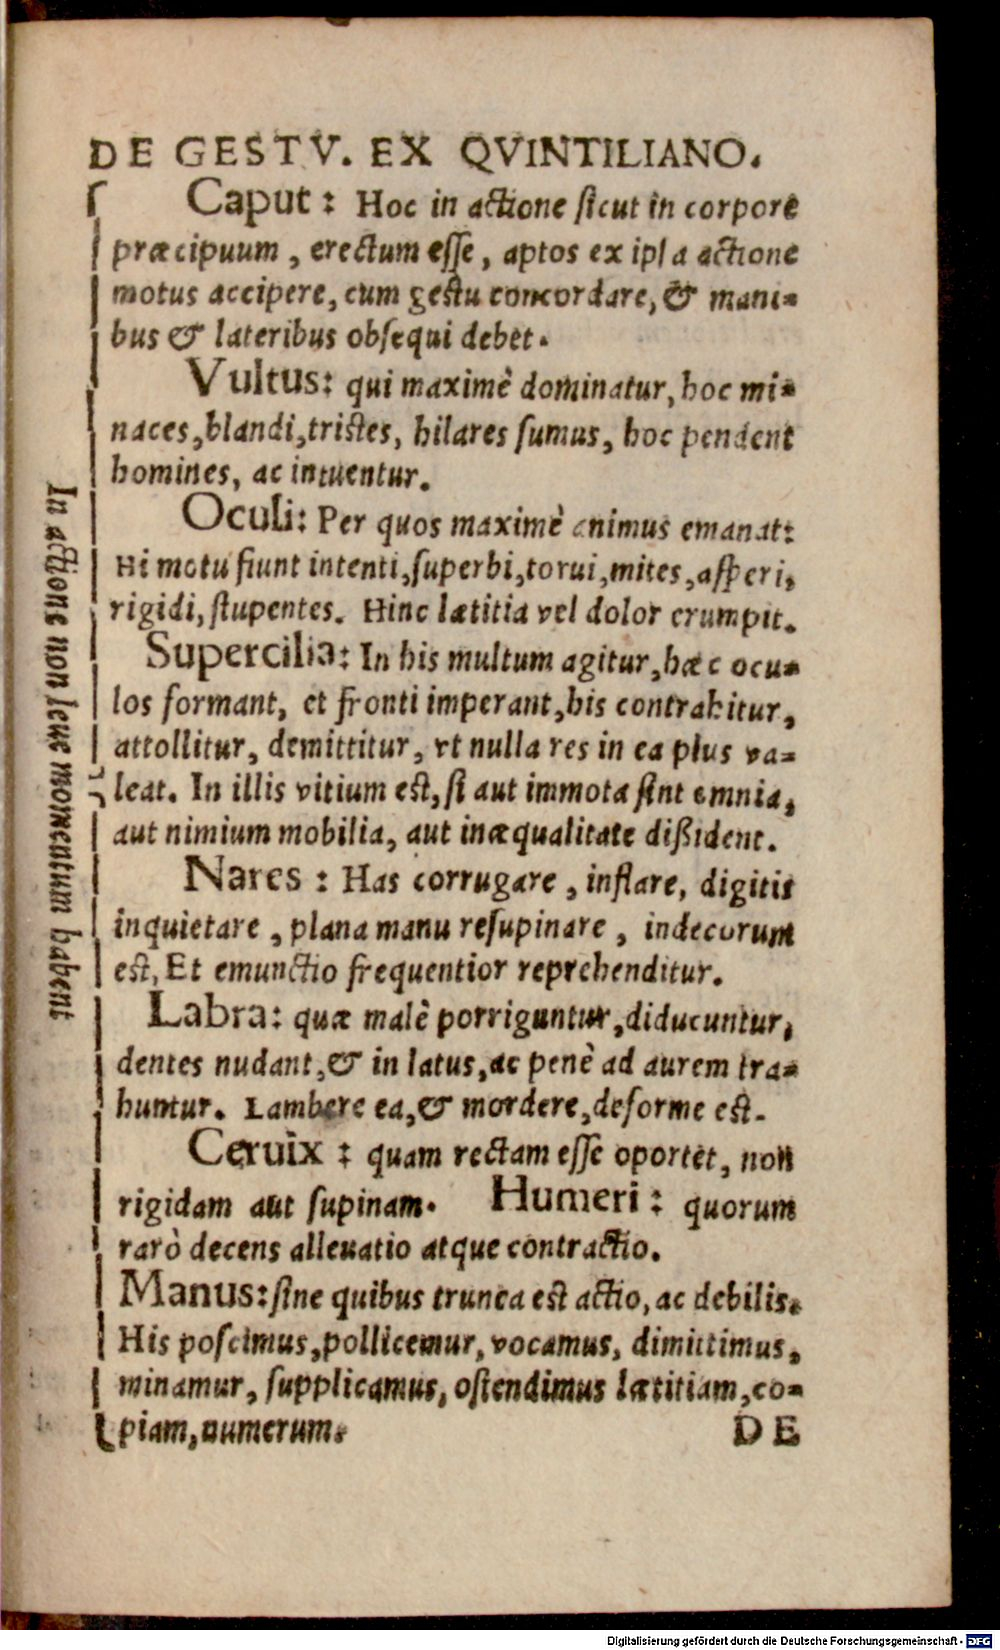 DE GESTV. EX QVINTILIANO.
Caput : Hoc in actione sicut in corpore
præcipuum , erectum esse, aptos ex ipsa actione
motus accipere, cum gestu concordare, & mani-
bus & lateribus obsequi debet.
Vultus: qui maximè dominatur, hoc mi-
naces, blandi, tristes, hilares sumus, hoc pendent
homines, ac intuentur.
Oculi: Per quos maximè animus emanat:
Hi motu fiunt intenti, superbi, torui, mites, asperi,
rigidi, stupentes. Hinc lætitia vel dolor erumpit.
Supercilia: In his multum agitur, hæc ocu-
los formant, et fronti imperant, his contrahitur,
attollitur, demittitur, vt nulla res in ea plus va-
leat. In illis vitium est, si aut immota sint omnia,
aut nimium mobilia, aut inæqualitate dißident.
Nares : Has corrugare , inflare, digitis
inquietare , plana manu resupinare , indecorum
est, Et emunctio frequentior reprehenditur.
Labra: quæ malè porriguntur, diducuntur,
dentes nudant, & in latus, ac penè ad aurem tra-
huntur. Lambere ea, & mordere, deforme est.
Ceruix : quam rectam esse oportet, non
rigidam aut supinam. Humeri : quorum
rarò decens alleuatio atque contractio.
Manus: sine quibus trunca est actio, ac debilis.
His poscimus, pollicemur, vocamus, dimittimus,
minamur, supplicamus, ostendimus lætitiam, co-
piam, numerum.
DE
In actione non leue momentum habent
Digitalisierung gefördert durch die Deutsche Forschungsgemeinschaft - DFG